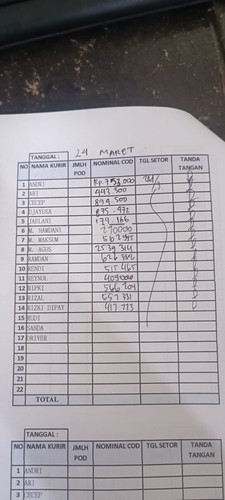 TANGGAL : 24 MARET
NO NAMA KURIR JMLH POD NOMINAL COD TGL SETOR TANDA TANGAN
1 ANDRI Rp.753.000
2 ARI 443.500
3 CECEP 894.500
4 DIAYUSA 875.472
5 JAELANI 179.366
6 M. HAMDANI 270000
7 M. MAKSUM
8 M. AGUS 2539.314
9 RAMDAN
10 RENDI 515.465
11 REYNOL
12 RIPKI 566.204
13 RIZAL 557.331
14 RIZKI DIPAY 417.723
15 RUDI
16 SANDA
17 DRIVER
18
19
20
21
22
TOTAL
TANGGAL :
NO NAMA KURIR JMLH POD NOMINAL COD TGL SETOR TANDA TANGAN
1 ANDRI
2 ARI
3 CECEP